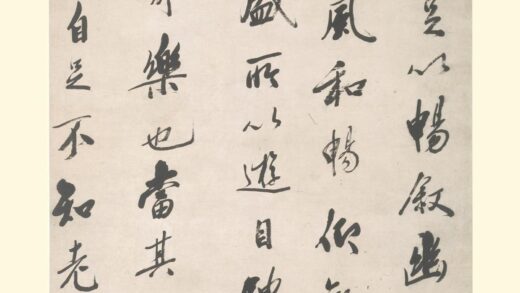 足以暢敘幽
風和暢仰
盛所以遊目騁
樂也當其
自足不知老